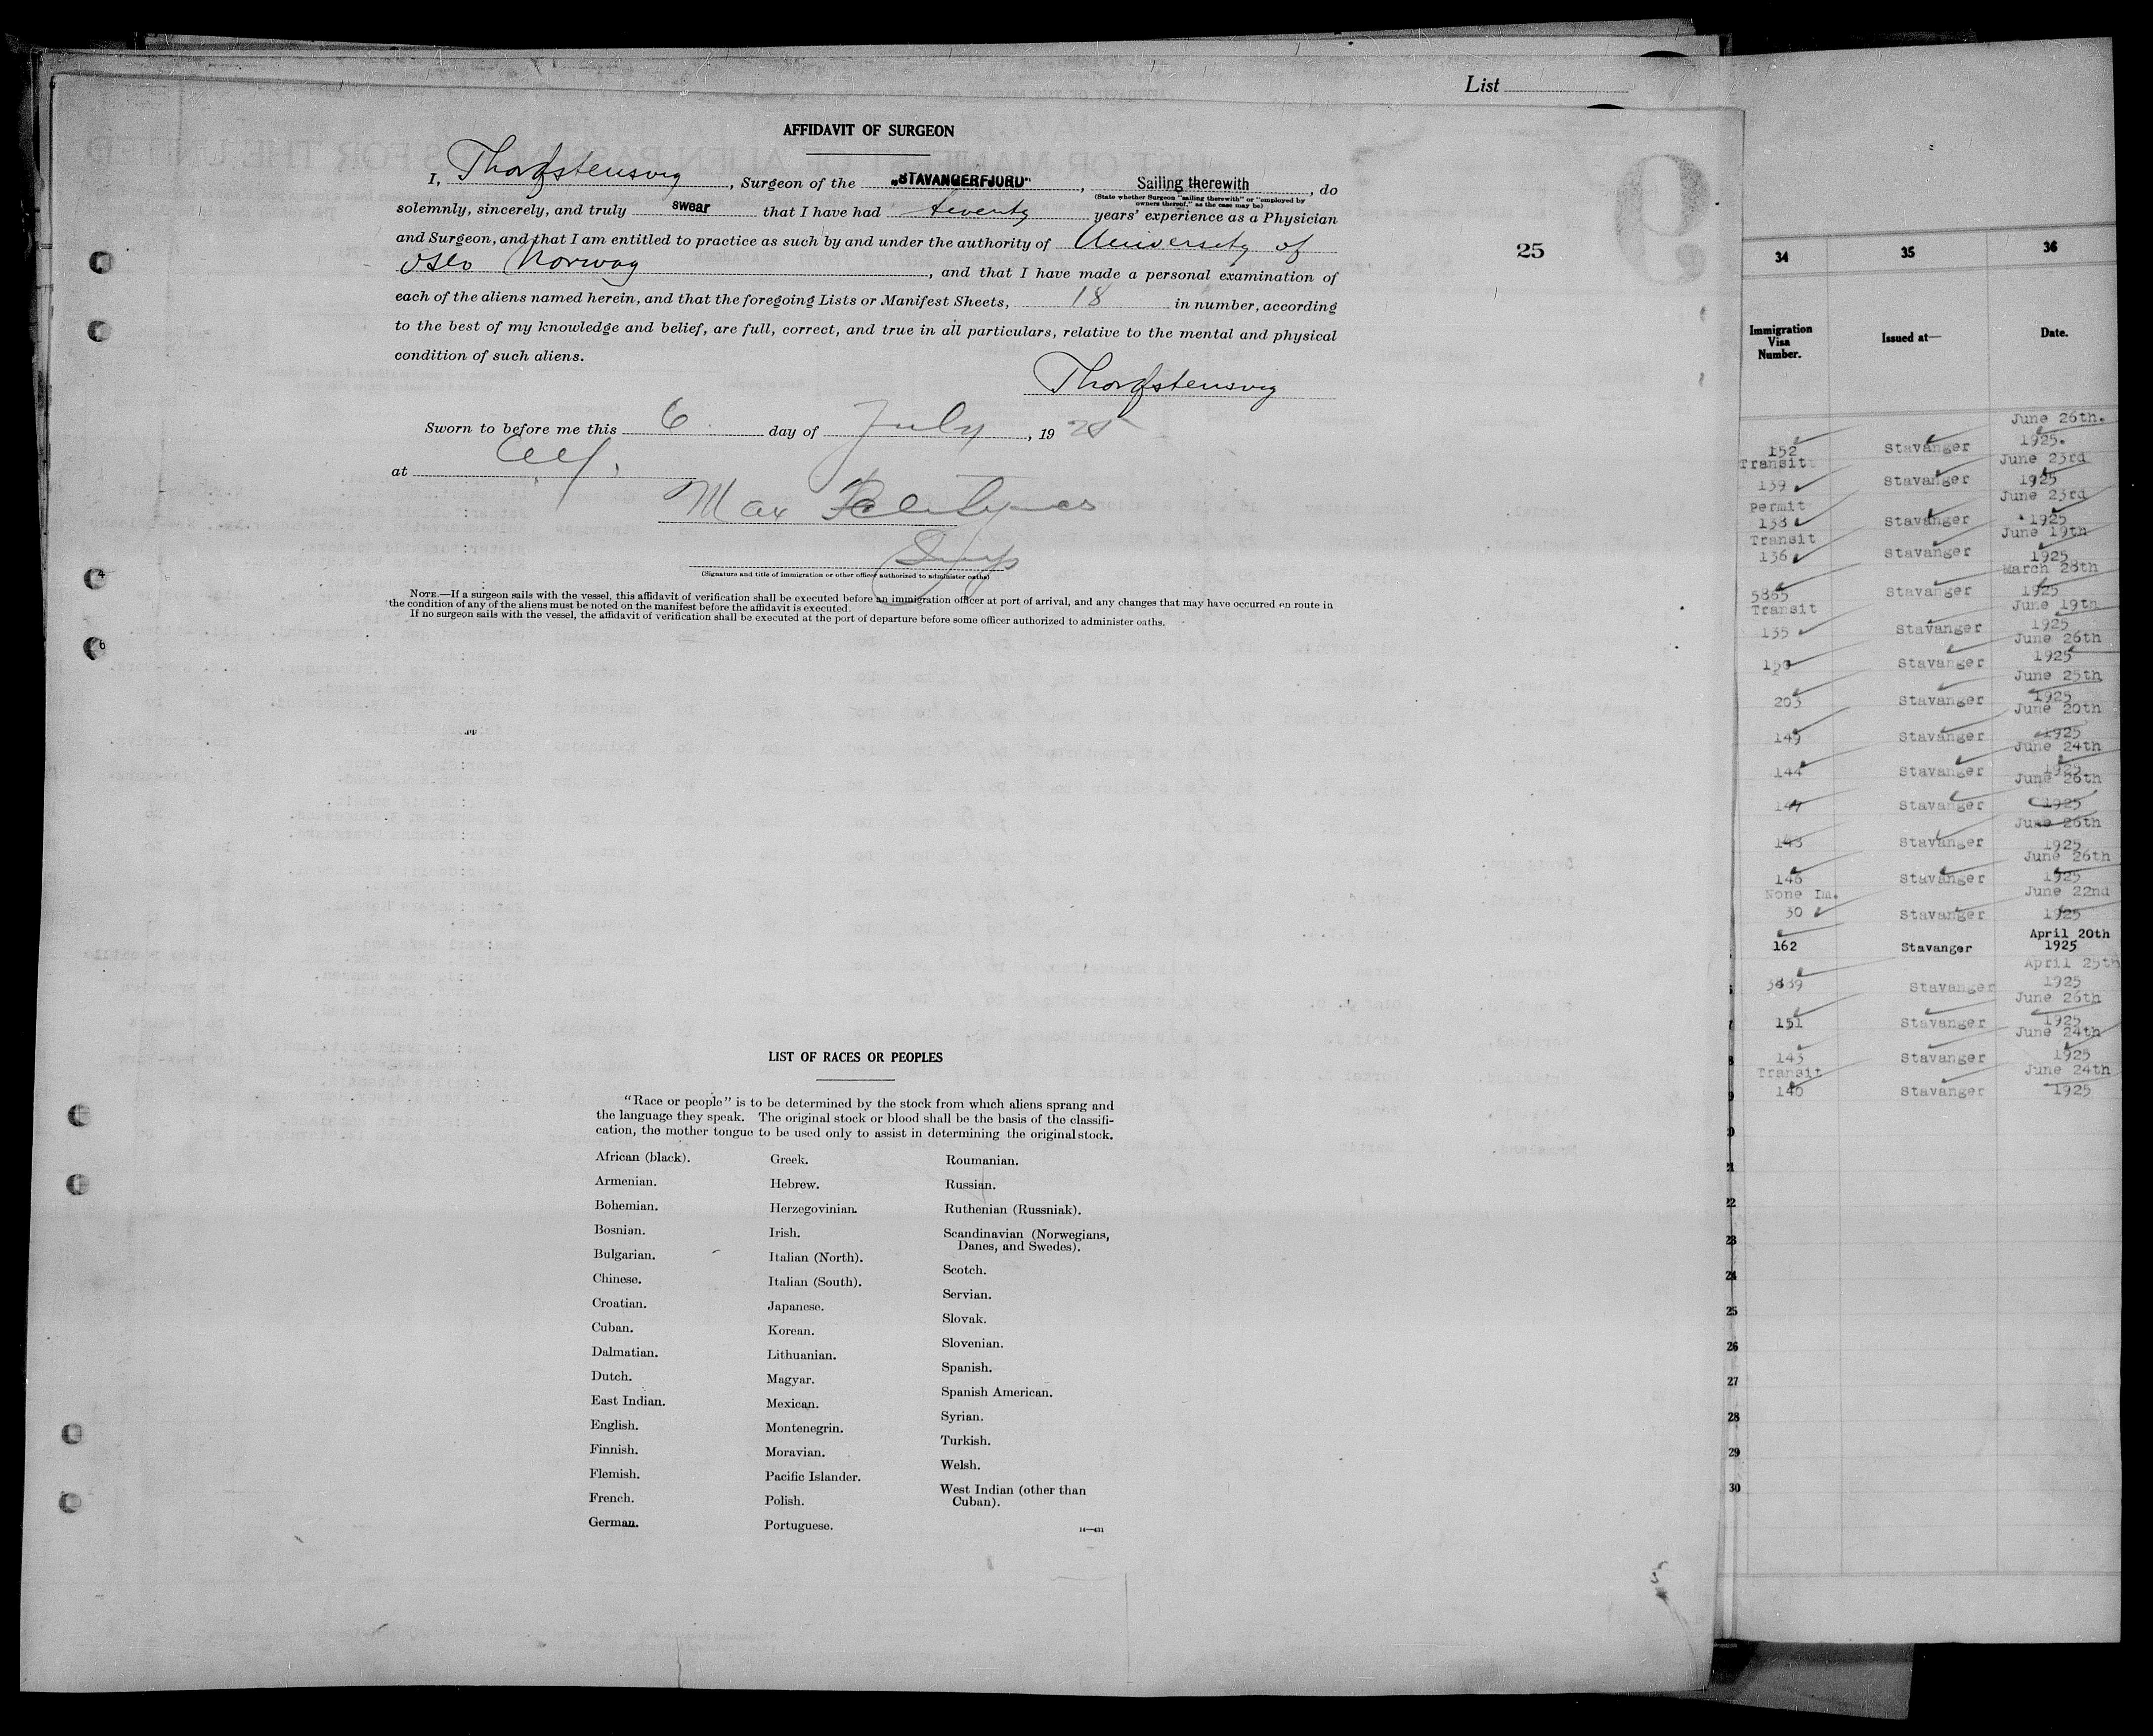 List
AFFIDAVIT OF SURGEON
I, , Surgeon of the "STAVANGERFJORD", Sailing therewith, do
(State whether Surgeon "sailing therewith" or "employed by
owners thereof," as the case may be)
solemnly, sincerely, and truly swear that I have had twenty years' experience as a Physician
and Surgeon, and that I am entitled to practice as such by and under the authority of University of
Oslo Norway, and that I have made a personal examination of
each of the aliens named herein, and that the foregoing Lists or Manifest Sheets, 18 in number, according
to the best of my knowledge and belief, are full, correct, and true in all particulars, relative to the mental and physical
condition of such aliens.
Sworn to before me this 6 day of July, 1925
at
Max
Insp
(Signature and title of immigration or other officer authorized to administer oaths)
NOTE.—If a surgeon sails with the vessel, this affidavit of verification shall be executed before an immigration officer at port of arrival, and any changes that may have occurred en route in
the condition of any of the aliens must be noted on the manifest before the affidavit is executed.
If no surgeon sails with the vessel, the affidavit of verification shall be executed at the port of departure before some officer authorized to administer oaths.
25
LIST OF RACES OR PEOPLES
"Race or people" is to be determined by the stock from which aliens sprang and
the language they speak. The original stock or blood shall be the basis of the classifi-
cation, the mother tongue to be used only to assist in determining the original stock.
African (black).
Armenian.
Bohemian.
Bosnian.
Bulgarian.
Chinese.
Croatian.
Cuban.
Dalmatian.
Dutch.
East Indian.
English.
Finnish.
Flemish.
French.
German.
Greek.
Hebrew.
Herzegovinian.
Irish.
Italian (North).
Italian (South).
Japanese.
Korean.
Lithuanian.
Magyar.
Mexican.
Montenegrin.
Moravian.
Pacific Islander.
Polish.
Portuguese.
Roumanian.
Russian.
Ruthenian (Russniak).
Scandinavian (Norwegians,
Danes, and Swedes).
Scotch.
Servian.
Slovak.
Slovenian.
Spanish.
Spanish American.
Syrian.
Turkish.
Welsh.
West Indian (other than
Cuban).
34 35 36
Immigration
Visa
Number.
Issued at—
Date.
June 26th.
152 Stavanger 1925.
Transit June 23rd
139 Stavanger 1925
Permit June 23rd
138 Stavanger 1925
Transit June 19th
136 Stavanger 1925
March 28th
5865 Stavanger 1925
Transit June 19th
135 Stavanger 1925
June 26th
150 Stavanger 1925
June 25th
203 Stavanger 1925
June 20th
149 Stavanger 1925
June 24th
144 Stavanger 1925
June 26th
Stavanger 1925
June 26th
Stavanger 1925
June 26th
146 Stavanger 1925
None Im. June 22nd
30 Stavanger 1925
April 20th
162 Stavanger 1925
April 25th
Stavanger 1925
June 26th
151 Stavanger 1925
June 24th
143 Stavanger 1925
Transit June 24th
140 Stavanger 1925
22
23
24
25
26
27
28
29
30